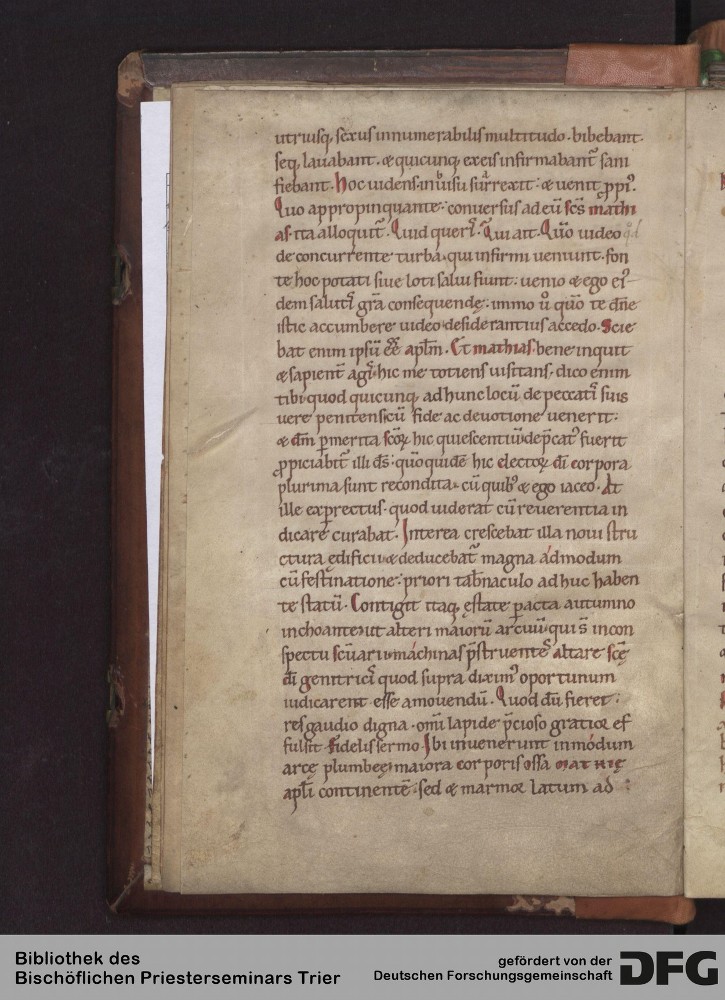 utriusq; sexus innumerabilis multitudo · bibebant ·
seq; lauabant · & quicunq; ex eis infirmabant᷑ sani
fiebant · Hoc uidens in uisu surrexit : & uenit ꝓpi᷒.
Quo appropinquante · conuersus ad eū scs̄ mathi
as · ita alloquit᷑ · Quid querꝭ · Qui ait · Quō uideo
de concurrente turba · qui infirmi ueniunt · fon
te hoc potati siue loti salui fiunt : uenio & ego ei᷒
dem salutꝭ gr̄a consequendę · immo u̅ quō te dn̄e
istic accumbere uideo · desiderantius accedo · Scie
bat enim ipsū eē̄ apl̄m · Et mathias · bene inquit
& sapient᷑ agꝭ · hic me totiens uisitans · dico enim
tibi quod quicunq; ad hunc locū de peccatꝭ suis
uere penitens cū fide ac deuotione uenerit :
& dm̄ ꝑ merita scoꝝ hic quiescentiū dep̄cat᷒ fuerit
ꝓpiciabit᷑ illi ds̄ : quō quidē hic electoꝝ dī corpora
plurima sunt recondita · cū quib᷒ & ego iaceo · At
ille exꝑrectus · quod uiderat cū reuerentia in
dicare curabat · Interea crescebat illa noui stru
ctura ędificii · & deducebat᷑ magna admodum
cū festinatione : priori tab̄naculo adhuc haben
te statū · Contigit itaq; ęstate ꝑacta autumno
inchoante · ut alteri maiorū arcuū · qui s̄ in con
spectu sc̄uarii · machinas p̄struentes altare sc̄ę
dī genitricꝭ quod supra dixim᷒ oportunum
iudicarent esse amouendū · Quod dū fieret :
res gaudio digna · omī lapide p̄cioso gratior ef
fulsit · Fidelis sermo · Ibi inuenerunt in modum
arcę plumbeę · maiora corporis ossa MATHIĘ
apl̄i continentē · sed & marmor latum ad
Bibliothek des
Bischöflichen Priesterseminars Trier
gefördert von der
Deutschen Forschungsgemeinschaft
DFG